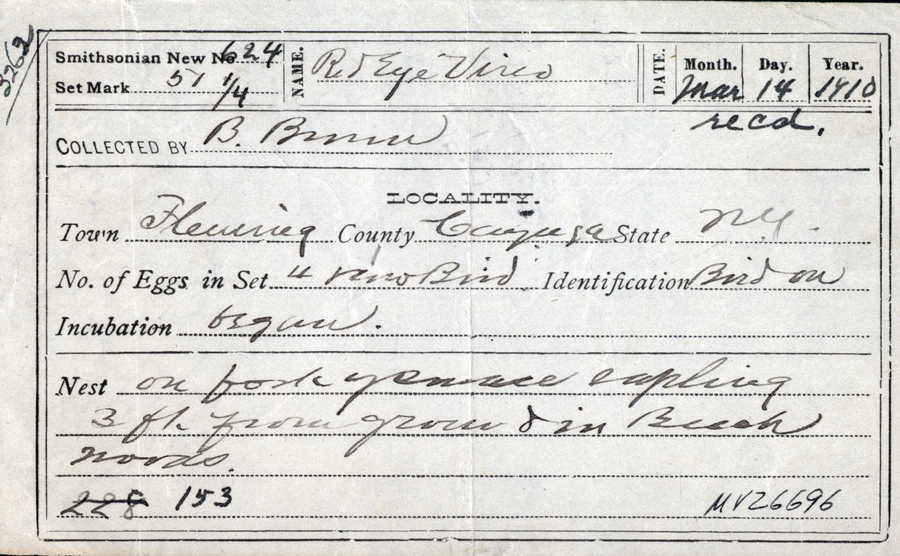 3262
Smithsonian New No 624 NAME. Red Eye Vireo DATE. Month. Day. Year.
Set Mark 51 1/4 Mar 14 1910
recd.
COLLECTED BY B. Brown
LOCALITY.
Town Fleming County Cayuga State N.Y.
No. of Eggs in Set 4 Bird Identification Bird on
Incubation began.
Nest on fork of sapling
3 ft. from ground in Beech
woods.
228 153 MV26696